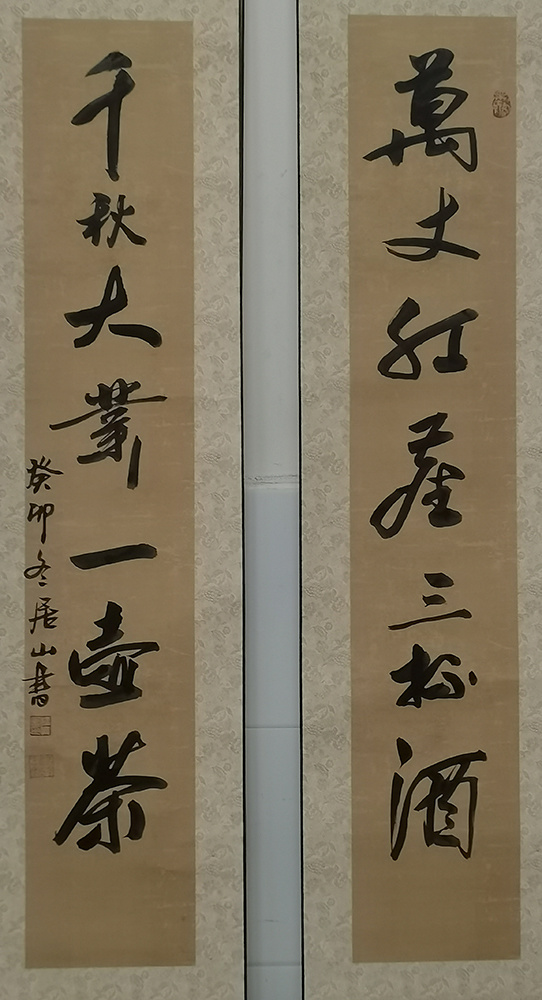 萬丈紅塵三杯酒
千秋大業一壺茶
癸卯冬居山書